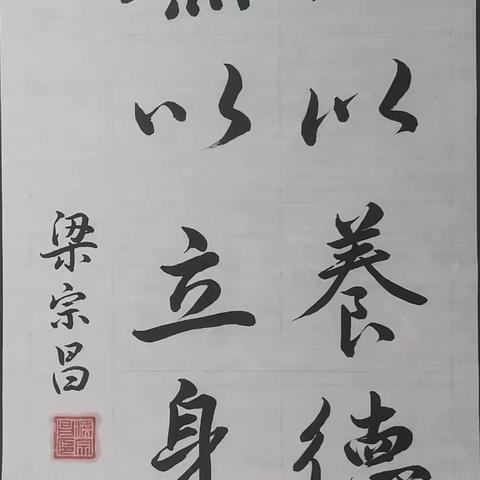 以養德
以立身
梁宗昌